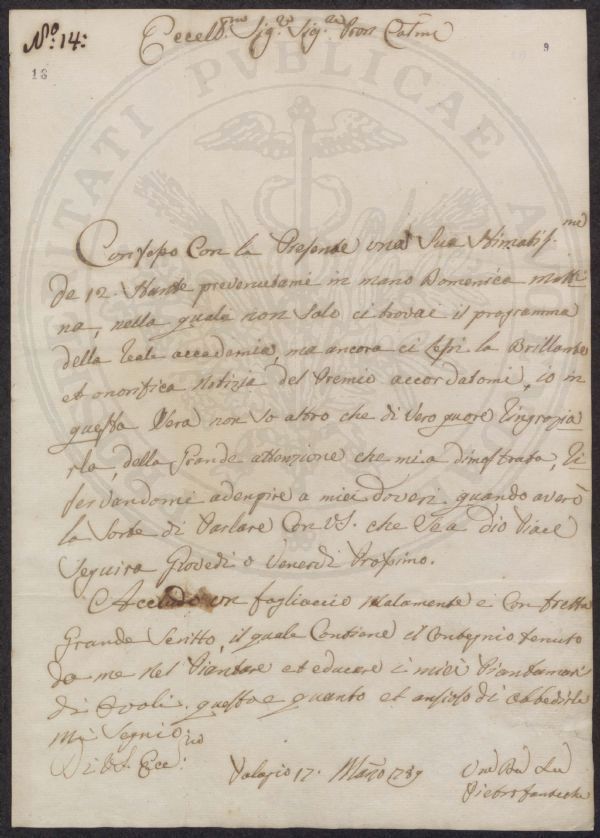 No: 14:
Eccell.mo Sig.r Sig.re Pron
18
9
Confesso Con la Presente una Sua Stimatiss.ma
de 12. Stante prevenutami in mano Domenica matti
na, nella quale non Solo ci trovai il programma
della Reale accademia, ma ancora ci lessi la Brillante
et onorifica notizia del Premio accordatomi, io in
questa Sera non So altro che di Vero quore Ringrazia
rla, della Grande attenzione che mi a dimostrato, Ri
servandomi adenpire a miei doveri quando averò
la Sorte di Parlare Con VS. che Se a dio Piace
Seguira Giovedi o Venerdi Prossimo.
Accludo un fogliaccio Malamente e Con fretta
Grande Scritto, il quale Contiene il Contegnio tenuto
da me nel Piantare et educare i miei Piantamari
di questo e quanto et ansioso di Obbedirla
Mi Segnio
Di VS. Ecc.
Palagio 17. Marzo 1789
Pietro
PUBLICAE